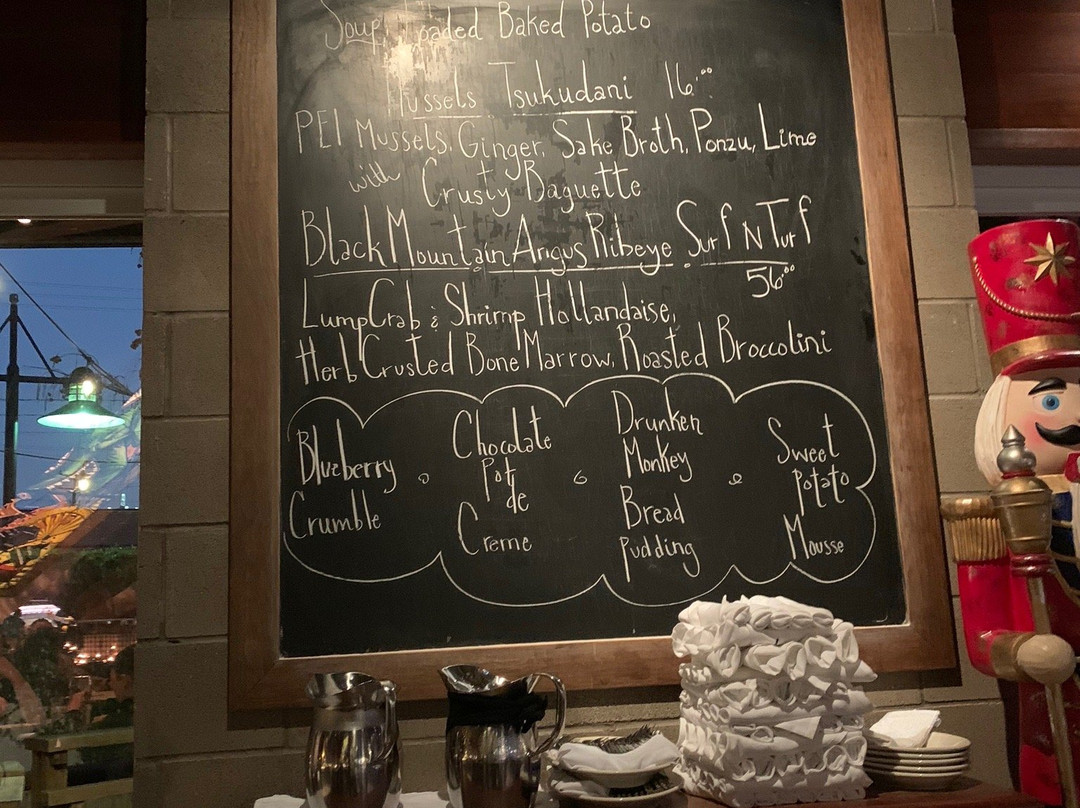 Soup Loaded Baked Potato
Mussels Tsukudani 16.00
PEI Mussels, Ginger, Sake Broth, Ponzu, Lime
with Crusty Baguette
Black Mountain Angus Ribeye Surf N Turf
56.00
Lump Crab & Shrimp Hollandaise,
Herb Crusted Bone Marrow, Roasted Broccolini
Blueberry
Crumble
Chocolate
Pot
de
Creme
Drunken
Monkey
Bread
Pudding
Sweet
Potato
Mousse